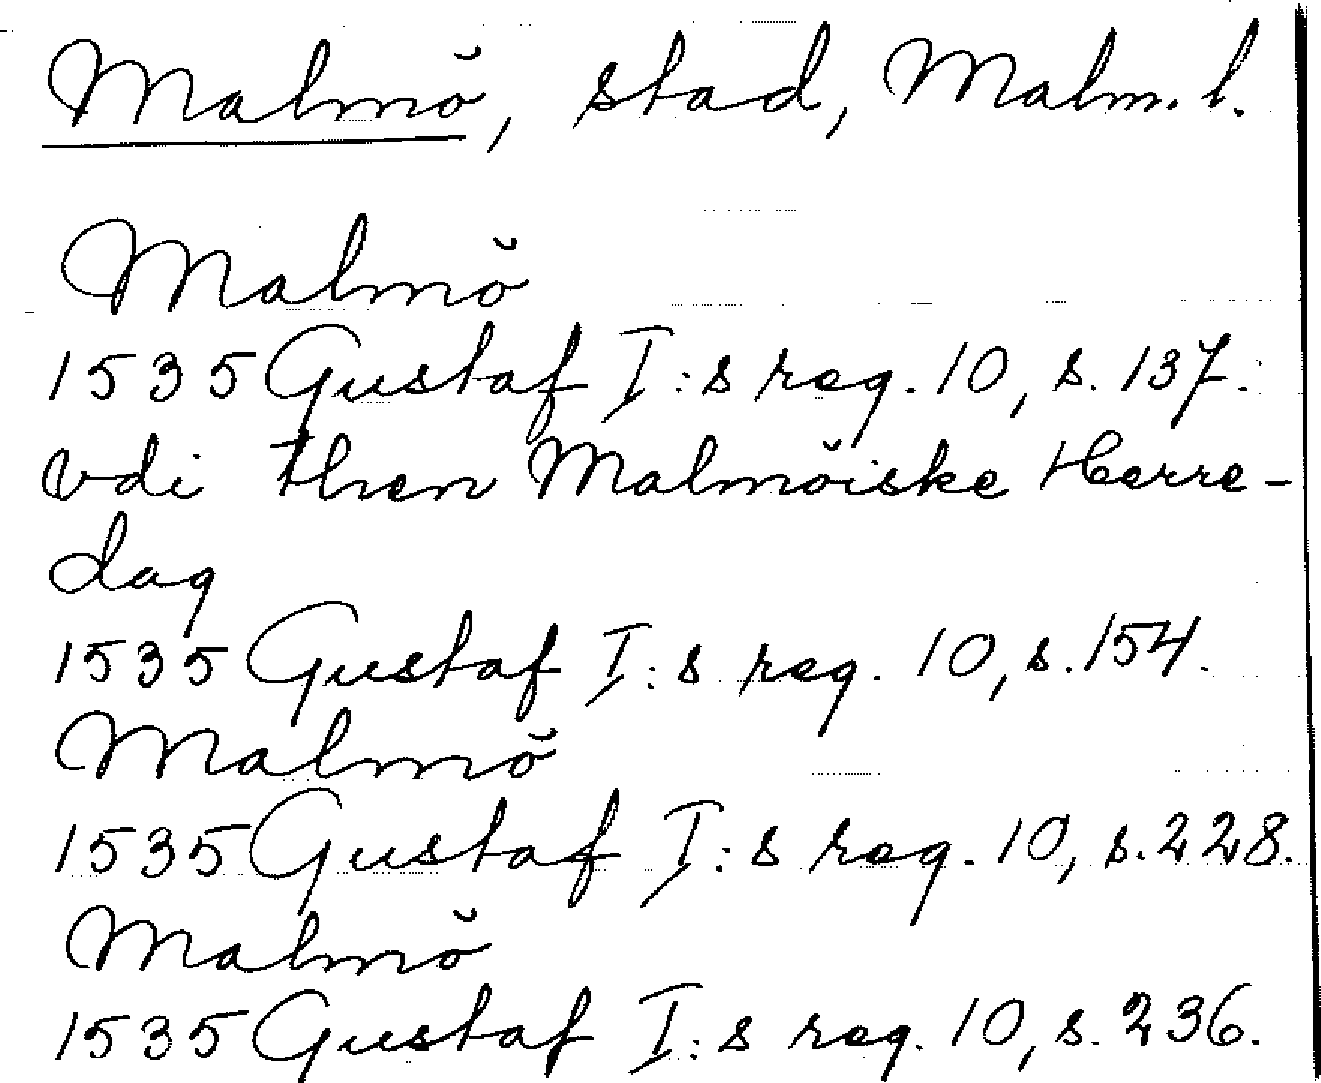 Malmö, stad, Malm. l.
Malmö
1535 Gustaf I:s reg. 10, s. 137.
vdi then Malmöiske Herre-
dag
1535 Gustaf I:s reg. 10, s. 154.
Malmö
1535 Gustaf I:s reg. 10, s. 228.
Malmö
1535 Gustaf I:s reg. 10, s. 236.